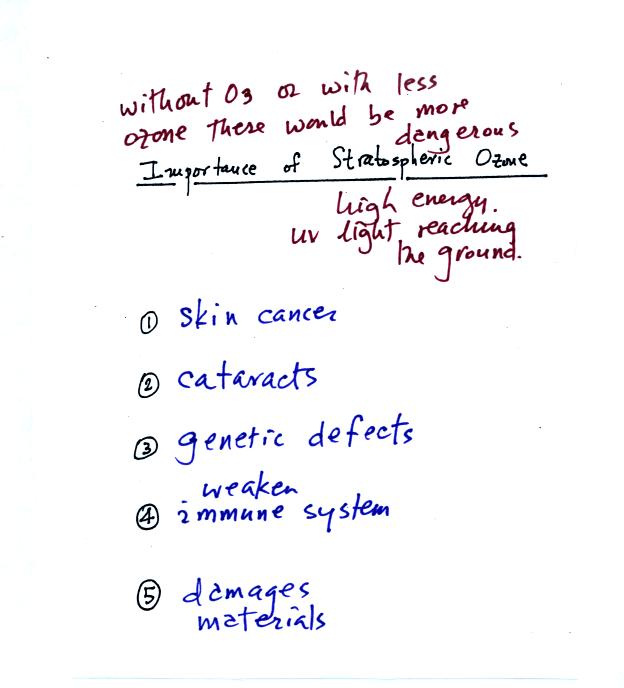 without O3 or with less
ozone there would be more
dangerous
Importance of Stratospheric Ozone
high energy.
uv light reaching
the ground.
① skin cancer
② cataracts
③ genetic defects
weaken
④ immune system
⑤ damages
materials